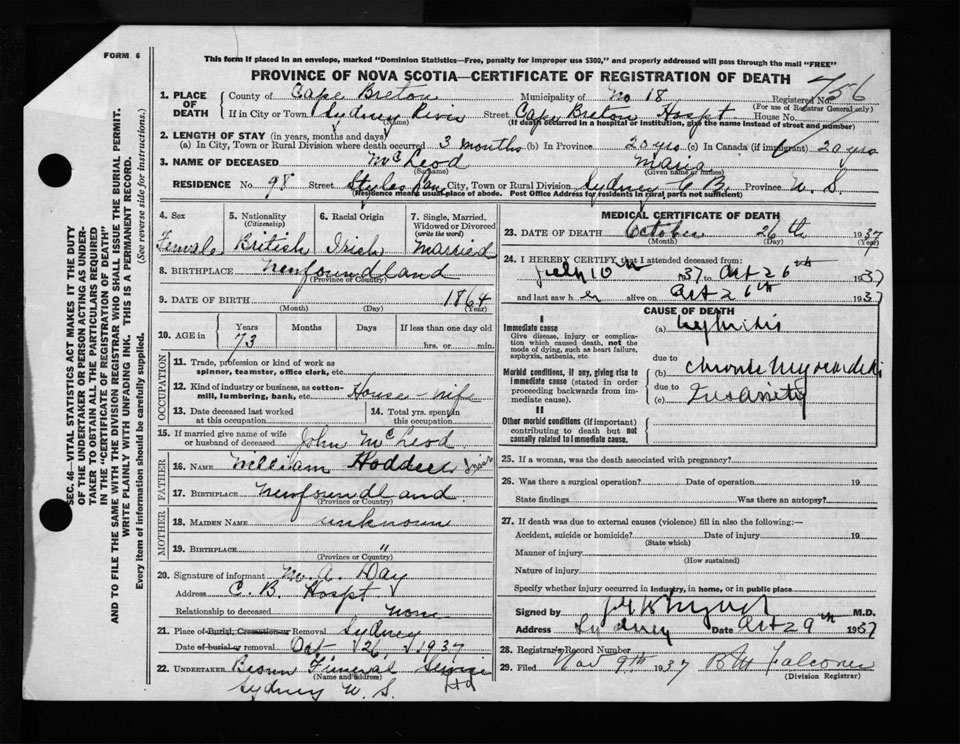 FORM 6
This form if placed in an envelope, marked "Dominion Statistics—Free, penalty for improper use $300," and properly addressed will pass through the mail "FREE"
PROVINCE OF NOVA SCOTIA—CERTIFICATE OF REGISTRATION OF DEATH
756
1. PLACE OF DEATH
County of Cape Breton Municipality of No 18 Registered No.
(For use of Registrar General only)
If in City or Town Sydney River Street Cape Breton Hospt House No.
(Name) (If death occurred in a hospital or institution, give the name instead of street and number)
2. LENGTH OF STAY (in years, months and days)
(a) In City, Town or Rural Division where death occurred 3 months (b) In Province 20 yrs (c) In Canada (if immigrant) 20 yrs
3. NAME OF DECEASED McLeod Maria
(Surname) (Given name or names)
RESIDENCE No. 98 Street Styles Lane City, Town or Rural Division Sydney C B. Province N. S.
(Residence means usual place of abode. Post Office Address for residents in rural parts not sufficient)
SEC. 46—VITAL STATISTICS ACT MAKES IT THE DUTY
OF THE UNDERTAKER OR PERSON ACTING AS UNDER-
TAKER TO OBTAIN ALL THE PARTICULARS REQUIRED
IN THE "CERTIFICATE OF REGISTRATION OF DEATH"
AND TO FILE THE SAME WITH THE DIVISION REGISTRAR WHO SHALL ISSUE THE BURIAL PERMIT.
WRITE PLAINLY WITH UNFADING INK. THIS IS A PERMANENT RECORD.
Every item of information should be carefully supplied.
(See reverse side for instructions.)
4. Sex
Female
5. Nationality
(Citizenship)
British
6. Racial Origin
Irish
7. Single, Married,
Widowed or Divorced
(write the word)
Married
8. BIRTHPLACE Newfoundland
(Province or Country)
9. DATE OF BIRTH 1864
(Month) (Day) (Year)
10. AGE in
Years Months Days If less than one day old
73 hrs. or min.
OCCUPATION
11. Trade, profession or kind of work as
spinner, teamster, office clerk, etc.
12. Kind of industry or business, as cotton-
mill, lumbering, bank, etc. House-wife
13. Date deceased last worked
at this occupation
14. Total yrs. spent in
this occupation
15. If married give name of wife
or husband of deceased John McLeod
FATHER
16. NAME William
17. BIRTHPLACE Newfoundland
(Province or Country)
MOTHER
18. MAIDEN NAME unknown
19. BIRTHPLACE "
(Province or Country)
20. Signature of informant M. A. Day
Address C. B. Hospt
Relationship to deceased None
21. Place of Burial, Cremation or Removal Sydney
Date of burial or removal Oct 26 1937
22. UNDERTAKER Brown Funeral Service
(Name and address) Ltd
Sydney N. S.
MEDICAL CERTIFICATE OF DEATH
23. DATE OF DEATH October 26th 1937
(Month) (Day) (Year)
24. I HEREBY CERTIFY that I attended deceased from:
July 10th 1937 to Oct 26th 1937
and last saw her alive on Oct 26th 1937
CAUSE OF DEATH
I
Immediate cause (a)
Give disease, injury or complica-
tion which caused death, not the
mode of dying, such as heart failure,
asphyxia, asthenia, etc.
due to
Morbid conditions, if any, giving rise to
immediate cause (stated in order
proceeding backwards from im-
mediate cause).
(b) Chronic Myocarditis
due to
(c) Insanity
II
Other morbid conditions (if important)
contributing to death but not
causally related to immediate cause.
25. If a woman, was the death associated with pregnancy?
26. Was there a surgical operation? Date of operation 19
State findings Was there an autopsy?
27. If death was due to external causes (violence) fill in also the following:—
Accident, suicide or homicide? Date of injury 19
(State which)
Manner of injury
(How sustained)
Nature of injury
Specify whether injury occurred in industry, in home, or in public place
Signed by M.D.
Address Sydney Date Oct 29th 1937
28. Registrar's Record Number
29. Filed Nov 9th 1937 B M Falconer
(Division Registrar)